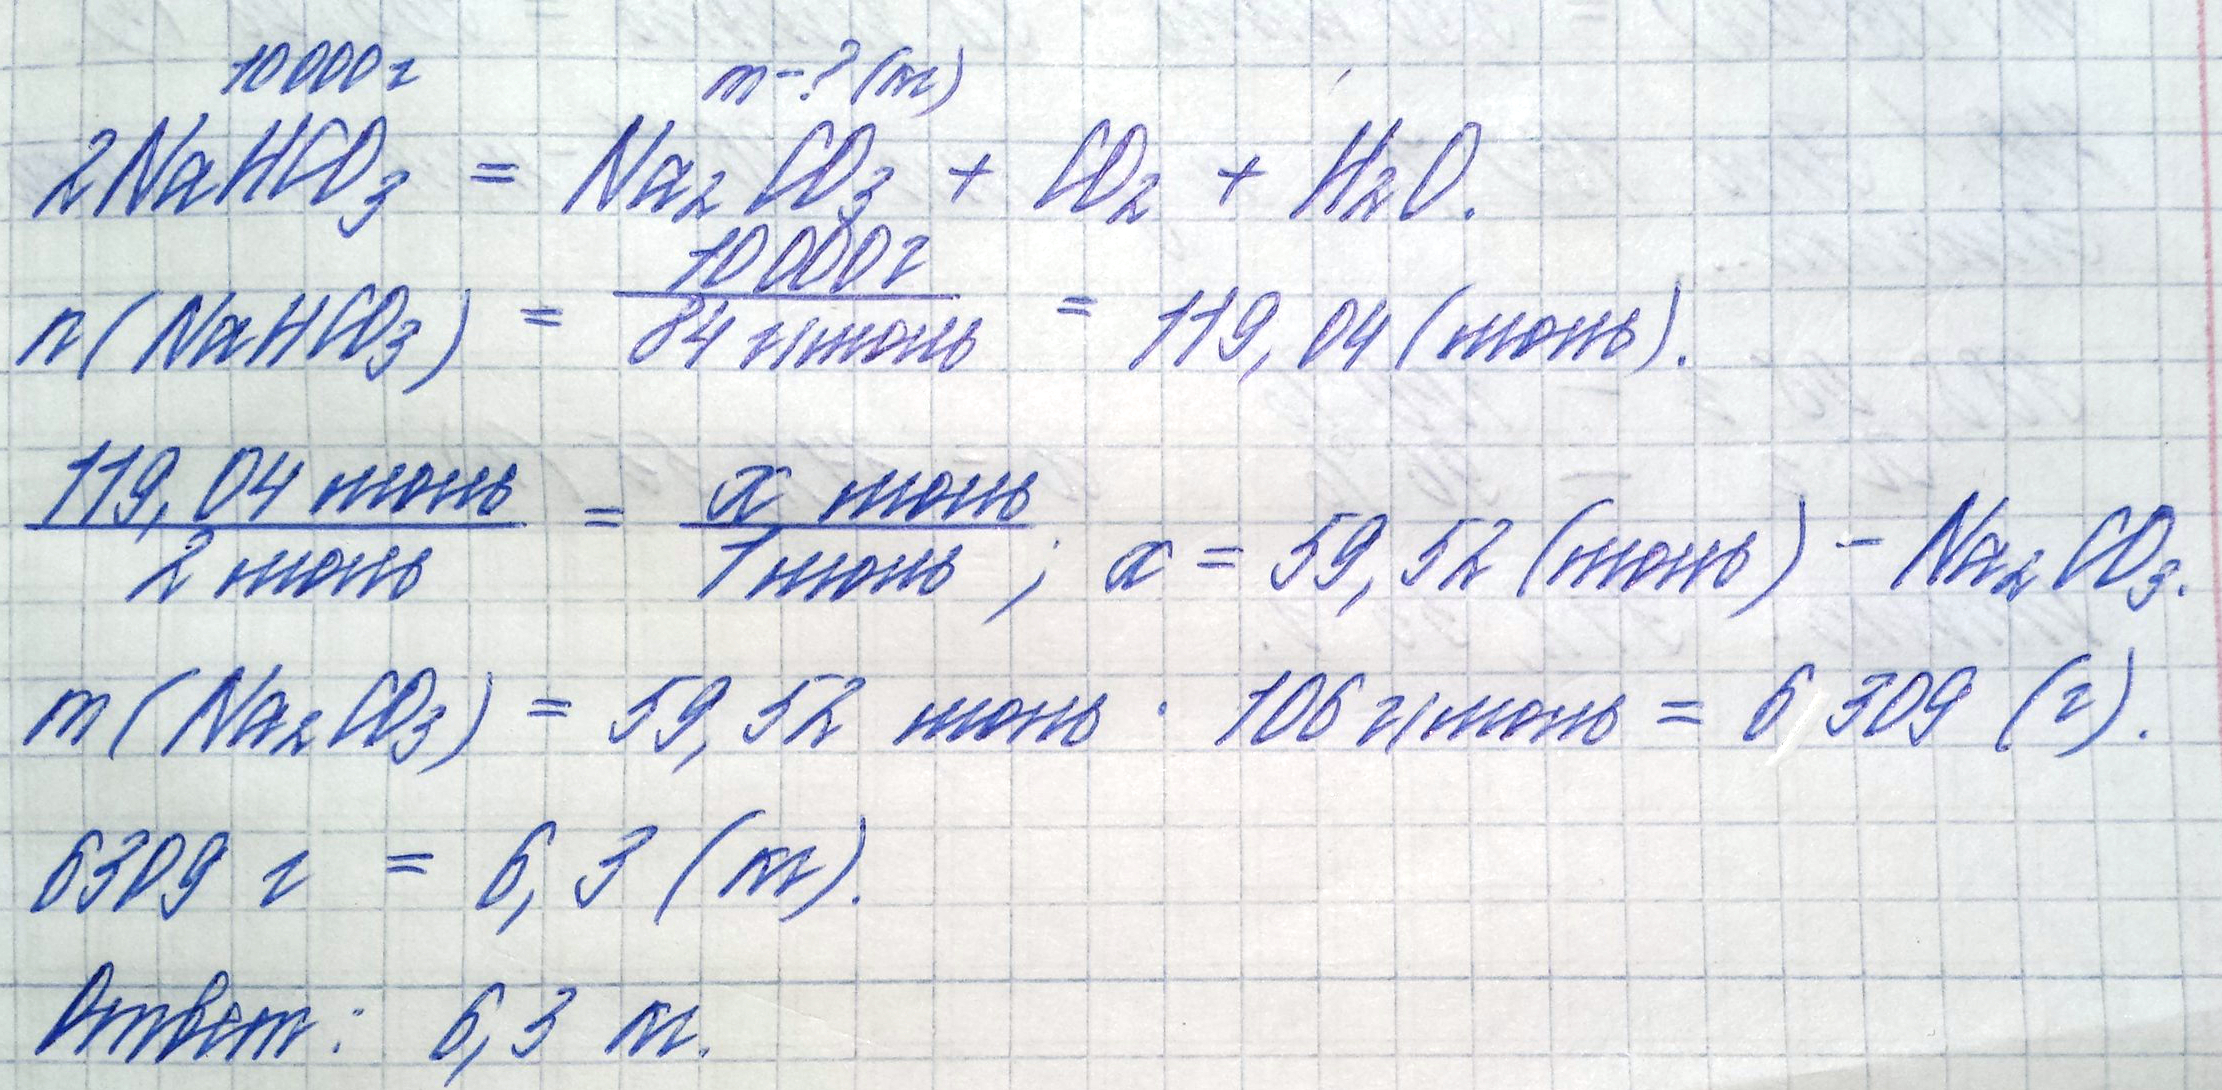 10000г m-? (кг)
2NaHCO₃ = Na₂CO₃ + CO₂ + H₂O.
n(NaHCO₃) = 10000г / 84 г/моль = 119,04 (моль).
119,04 моль / 2 моль = x моль / 1 моль ; x = 59,52 (моль) - Na₂CO₃.
m(Na₂CO₃) = 59,52 моль · 106 г/моль = 6309 (г).
6309 г = 6,3 (кг).
Ответ: 6,3 кг.